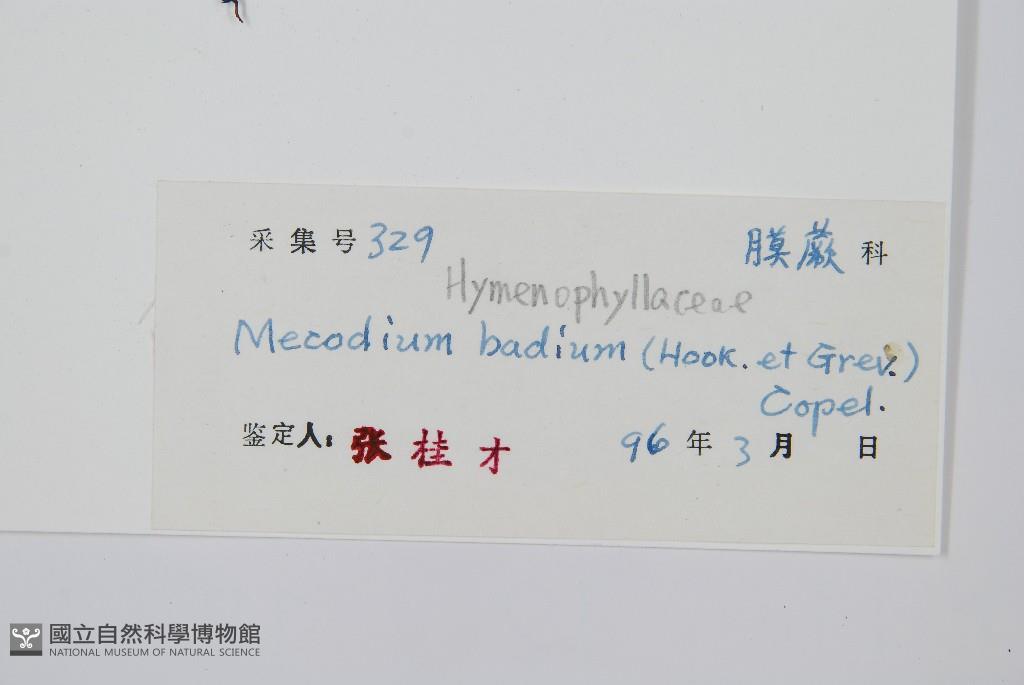 采集号 329 膜蕨 科
Hymenophyllaceae
Mecodium badium (Hook. et Grev.)
Copel.
鉴定人: 张桂才 96 年 3 月 日
國立自然科學博物館
NATIONAL MUSEUM OF NATURAL SCIENCE